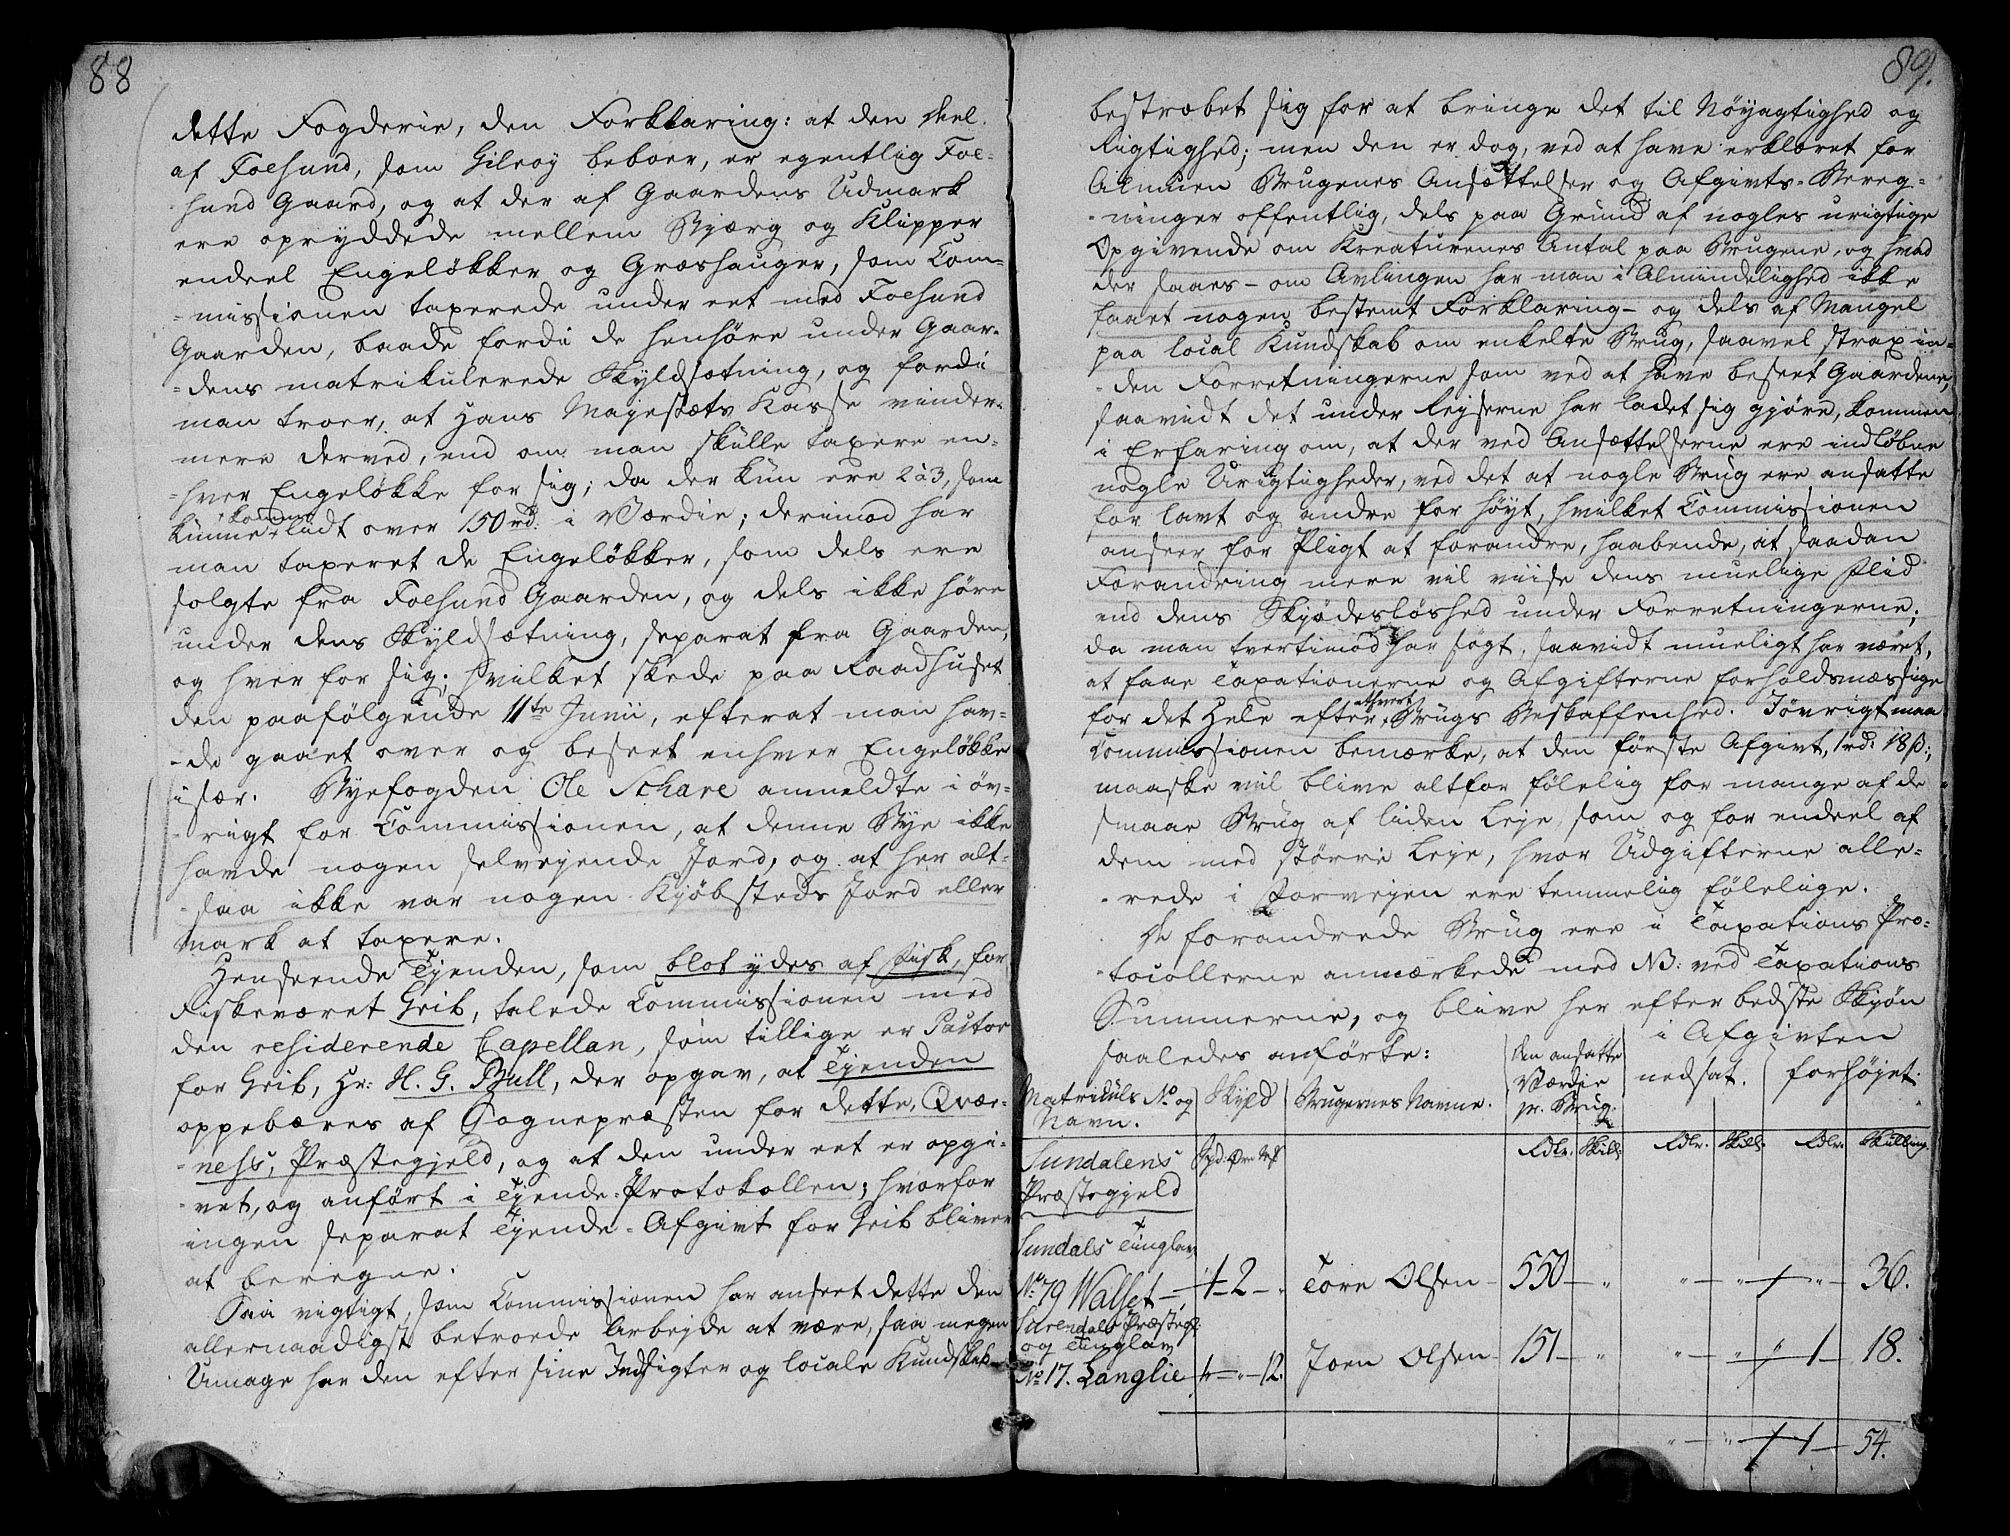 88
dette Fogderie, den Forklaring: at den Deel
af Foesund, som Gilroy beboer, er egentlig Foe-
sund Gaard, og at der af Gaardens Udmark
ere opryddede mellem Bjærg og Klipper
endeel Engeløkker og Græshauger, som Com-
missionen taxerede under eet med Foesund
Gaarden, baade fordi de henhøre under Gaar-
dens matrikulerede Skyldsætning, og fordi
man troer, at Hans Majestæts Kasse vinder
mere derved, end om man skulle taxere en-
hver Engeløkke for sig; da der kun ere 2 à 3, som
kunne komme lidt over 150 rd. i Værdie; derimod har
man taxeret de Engeløkker, som dels ere
solgte fra Foesund Gaarden, og dels ikke høre
under dens Skyldsætning, separat fra Gaarden,
og hver for sig; hvilket skede paa Raadhuset
den paafølgende 11te Junii, efterat man hav-
de gaaet over og beseet enhver Engeløkke
især. Byefogden Ole Schare anmeldte i øv-
rigt for Commissionen, at denne Bye ikke
havde nogen selvejende Jord, og at her alt-
saa ikke var nogen Kjøbsteds Jord eller
mark at taxere.
Henseende Tjenden, som blot ydes af Fisk, for
Fiskeværet Grib, talede Commissionen med
den residerende Capellan, som tillige er Pastor
for Grib, Hr: H. G. Bull, der opgav, at Tjenden
oppebæres af Sognepræsten for dette, Qvær-
ness, Præstegjeld, og at den under eet er opgi-
vet, og anført i Tjende-Protokollen; hvorfor
ingen separat Tjende-Afgivt for Grib bliver
at beregne.
Saa vigtigt, som Commissionen har anseet dette den
allernaadigst betroede Arbejde at være, saa megen
Umage har den efter sine Indsigter og locale Kundskab
89.
bestræbet sig for at bringe det til Nøyagtighed og
Rigtighed; men den er dog, ved at have erklæret for
Almuen Brugenes Ansættelser og Afgivts-Bereg-
ninger offentlig, dels paa Grund af nogles urigtige
Opgivende om Kreaturenes Antal paa Brugene, og hvad
der saaes - om Avlingen har man i Almindelighed ikke
faaet nogen bestemt Forklaring - og dels af Mangel
paa local Kundskab om enkelte Brug, saavel strax in-
den Forretningerne som ved at have beseet Gaardene,
saavidt det under Rejserne har ladet sig gjøre, kommen
i Erfaring om, at der ved Ansættelserne ere indløbne
nogle Urigtigheder, ved det at nogle Brug ere ansatte
for lavt og andre for høyt, hvilket Commissionen
anseer for Pligt at forandre, haabende, at saadan
Forandring mere vil viise dens muelige Flid
end dens Skjødesløshed under Forretningerne;
da man tvertimod har søgt, saavidt mueligt har været,
at faae Taxationerne og Afgifterne forholdsmæssige
for det Hele efter ethvert Brugs Beskaffenhed. Jøvrigt maa
Commissionen bemærke, at den første Afgivt, 1 rd: 18 ß:,
maaske vil blive altfor følelig for mange af de
smaae Brug af liden Leje, som og for endeel af
dem med større Leje, hvor Udgifterne alle-
rede i Forvejen ere temmelig følelige.
De forandrede Brug ere i Taxations Pro-
tocollerne anmærkede med NB: ved Taxations
Summerne, og blive her efter bedste Skjøn
saaledes anførte:
Matriculs No og Navn. Skyld Brugernes Navne. Den ansatte Værdie pr. Brug. i Afgivten nedsat. forhøjet.
Rdlr. Skill. Rdlr. Skill. Rdlr. Skilling
Sundalens
Præstegjeld
Sundals Tinglav
No 79 Walset 1 - 2 - " Tore Olsen 550 - " " - " " - 36.
Surendals Præstegl.
og Tinglav
No 17. Langlie " - " - 12. Joen Olsen 151 - " " - " 1 - 18.
" - " 1 - 54.